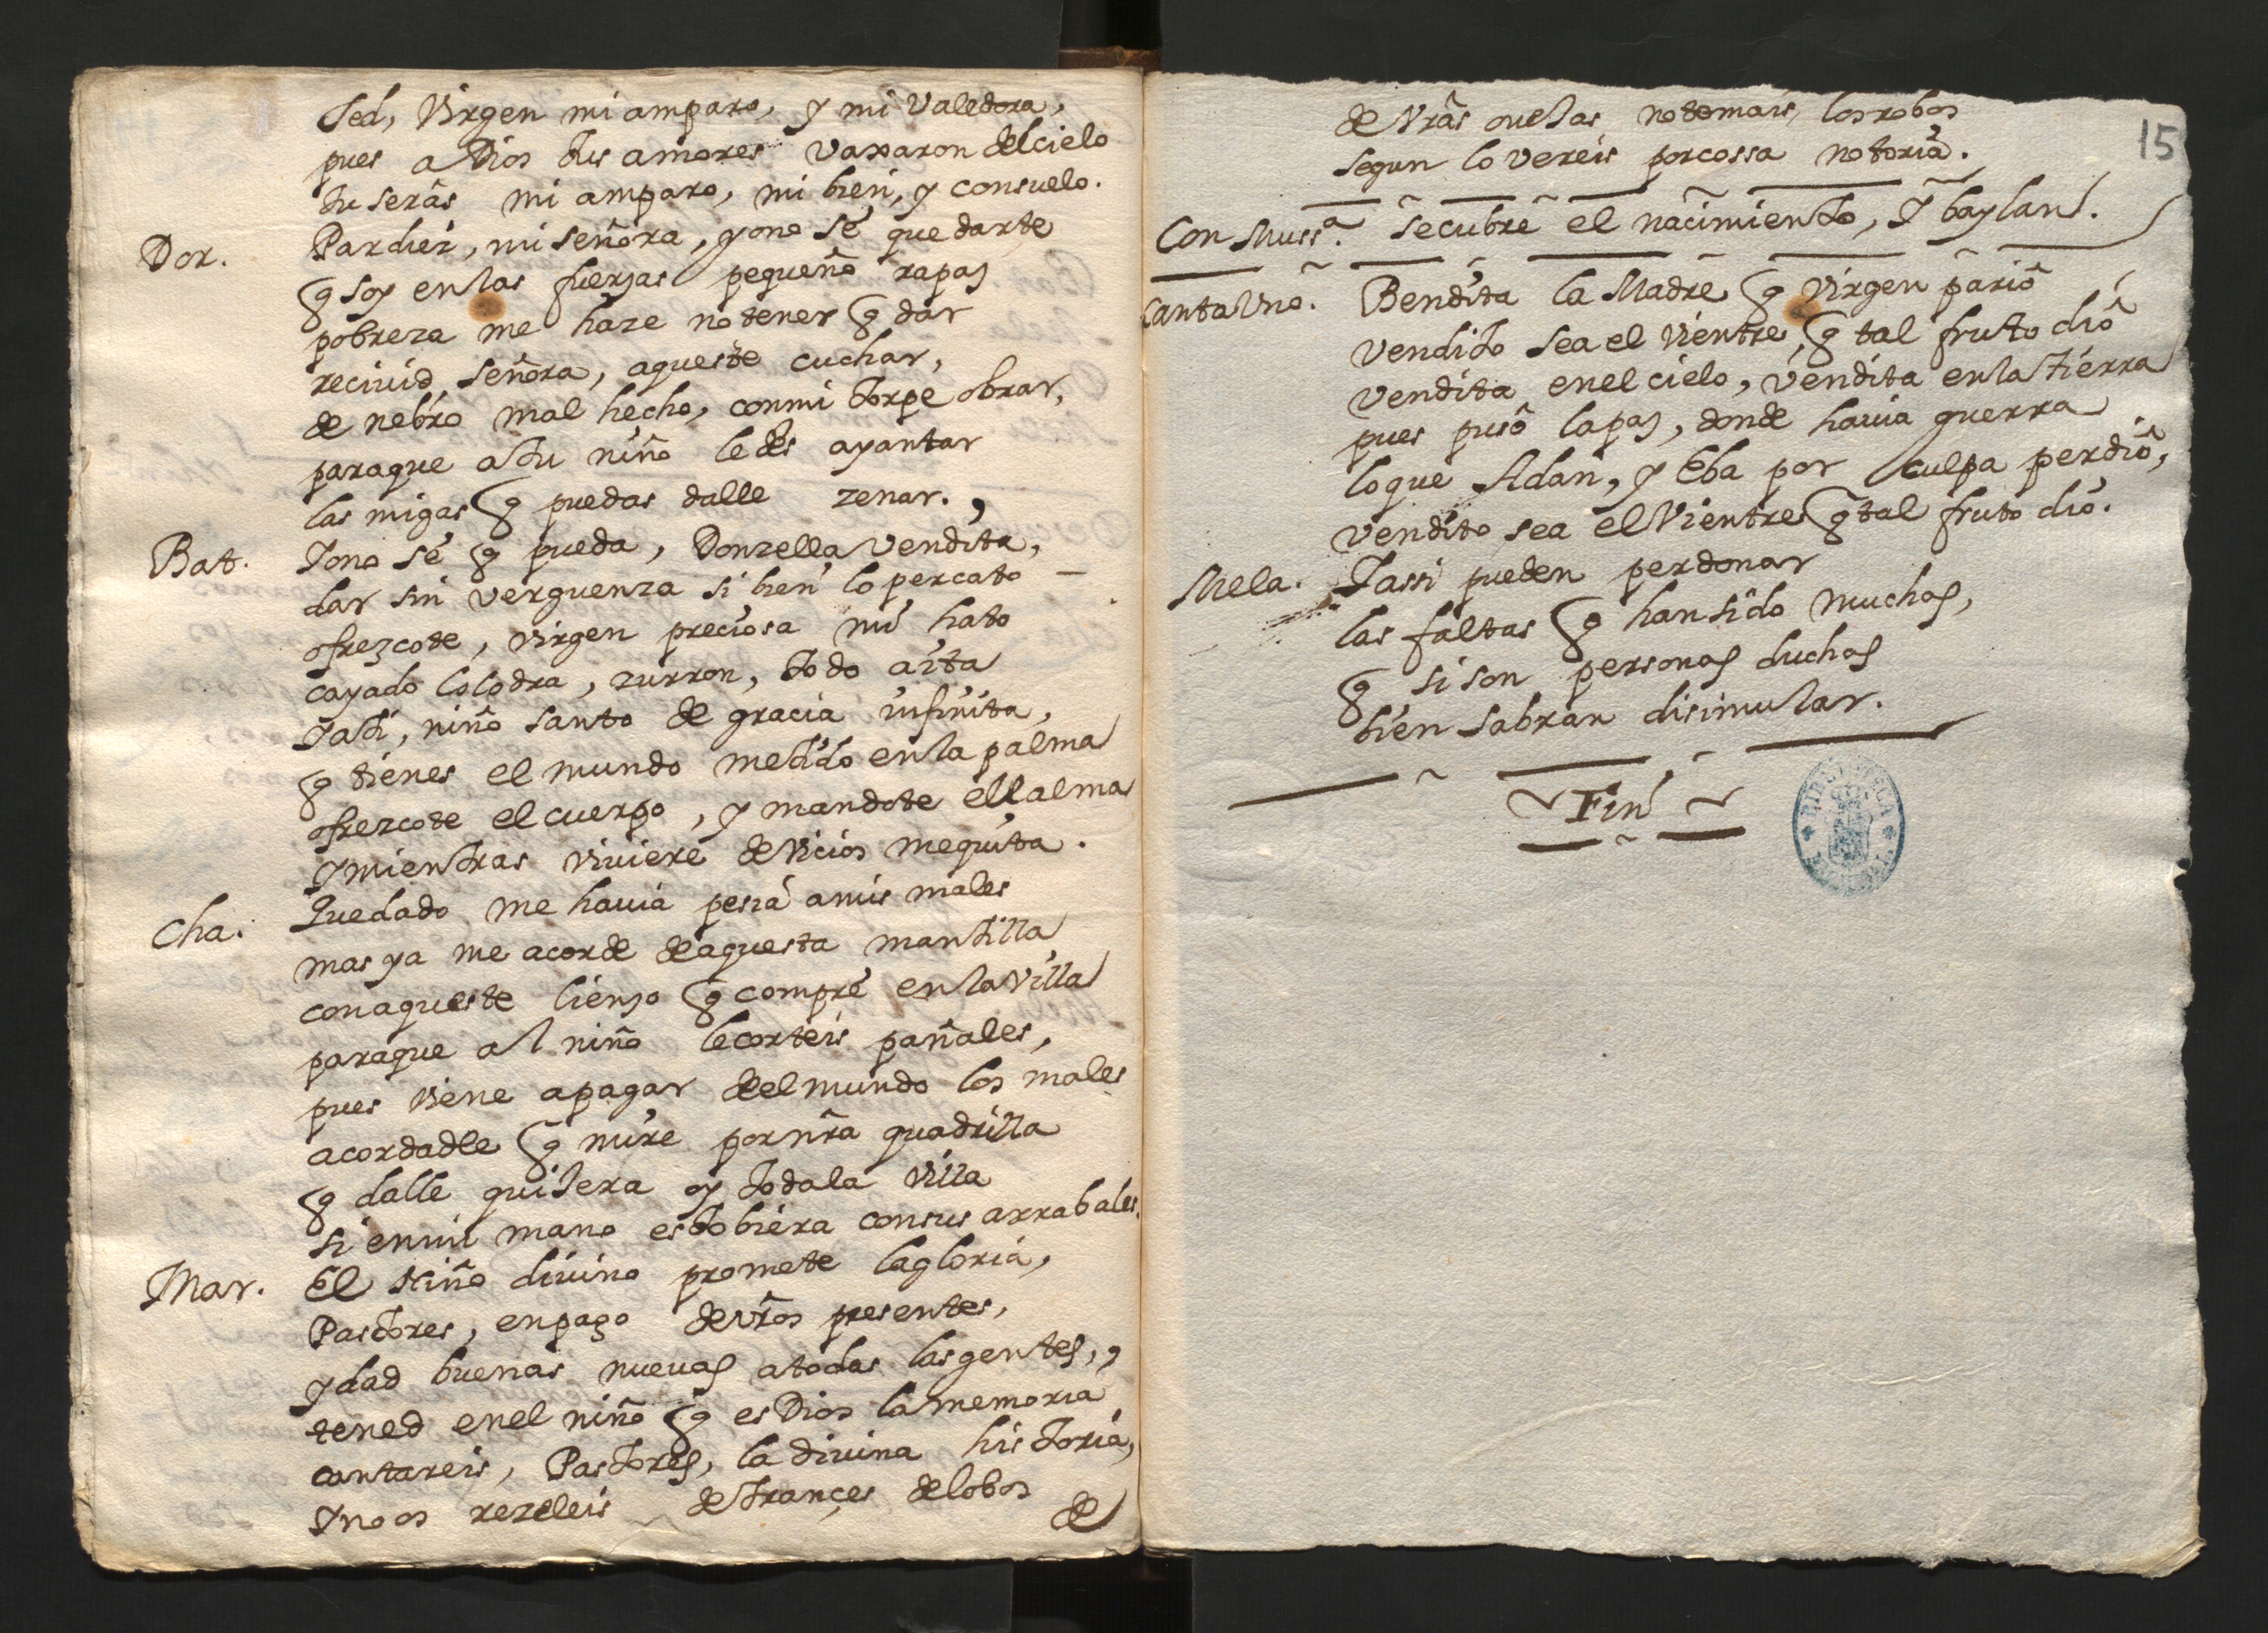 Sed, Virgen mi amparo, y mi Valedora,
pues a Dios tus amores vaxaron del cielo
tu serâs mi amparo, mi bien, y consuelo.
Dor. Pardiez, mi señora, yono sé que darte
q̃ soy enlas fuerzas pequeño rapaz
pobreza me haze notener q̃ dar
recivid señora, aqueste cuchar,
de nebro mal hecho, conmi torpe obrar,
paraque atu niño ledes ayantar
las migas q̃ puedas dalle zenar.,
Bat. Yono sé q̃ pueda, Donzella vendita,
dar sin verguenza si bien lo percato
ofrezcote, virgen preciosa mi hato
cayado colodra, zurron, todo aita
Yati, niño santo de gracia infinita,
q̃ tienes el mundo metido enla palma
ofrezcote el cuerpo, y mandote ellalma
Ymientras viviere deVicios mequita.
Cha. Quedado me havia pesia amis males
mas ya me acorde deaquesta mantilla
conaqueste lienzo q̃ compré enlaVilla
paraque al niño lecorteis pañales,
pues viene apagar delmundo los males
acordadle q̃ mire pornr̃a quadrilla
q̃ dalle quisera oy todala Villa
si enmi mano estobiera consus arrabales.
Mar. El Niño divino promete lagloria,
Pastores, enpago devr̃os presentes,
ydad buenas nuevas atodas lasgentes,,
tened enel niño q̃ es Dios lamemoria
cantareis, Pastores, la divina historia,
Ynoos rezeleis detrançes delobos
de
15
de Vrãs ovejas notemais, losrobos
segun lo vereis porcossa notoria.
Con Mussª. secubre el nacimiento, Y baylan.
Canta Uno. Bendita la Madre q̃ Virgen parió
vendito sea el vientre, q̃ tal fruto dió
vendita enel cielo, vendita enla tierra
pues pusó lapaz, donde havia guerra
loque Adan, y Eba por culpa perdió,
vendito sea el Vientre q̃ tal fruto dió.
Mela. Yassi pueden perdonar
las faltas q̃ hansido muchas,
q̃ si son personas duchas
bien sabran disimular.
Fin